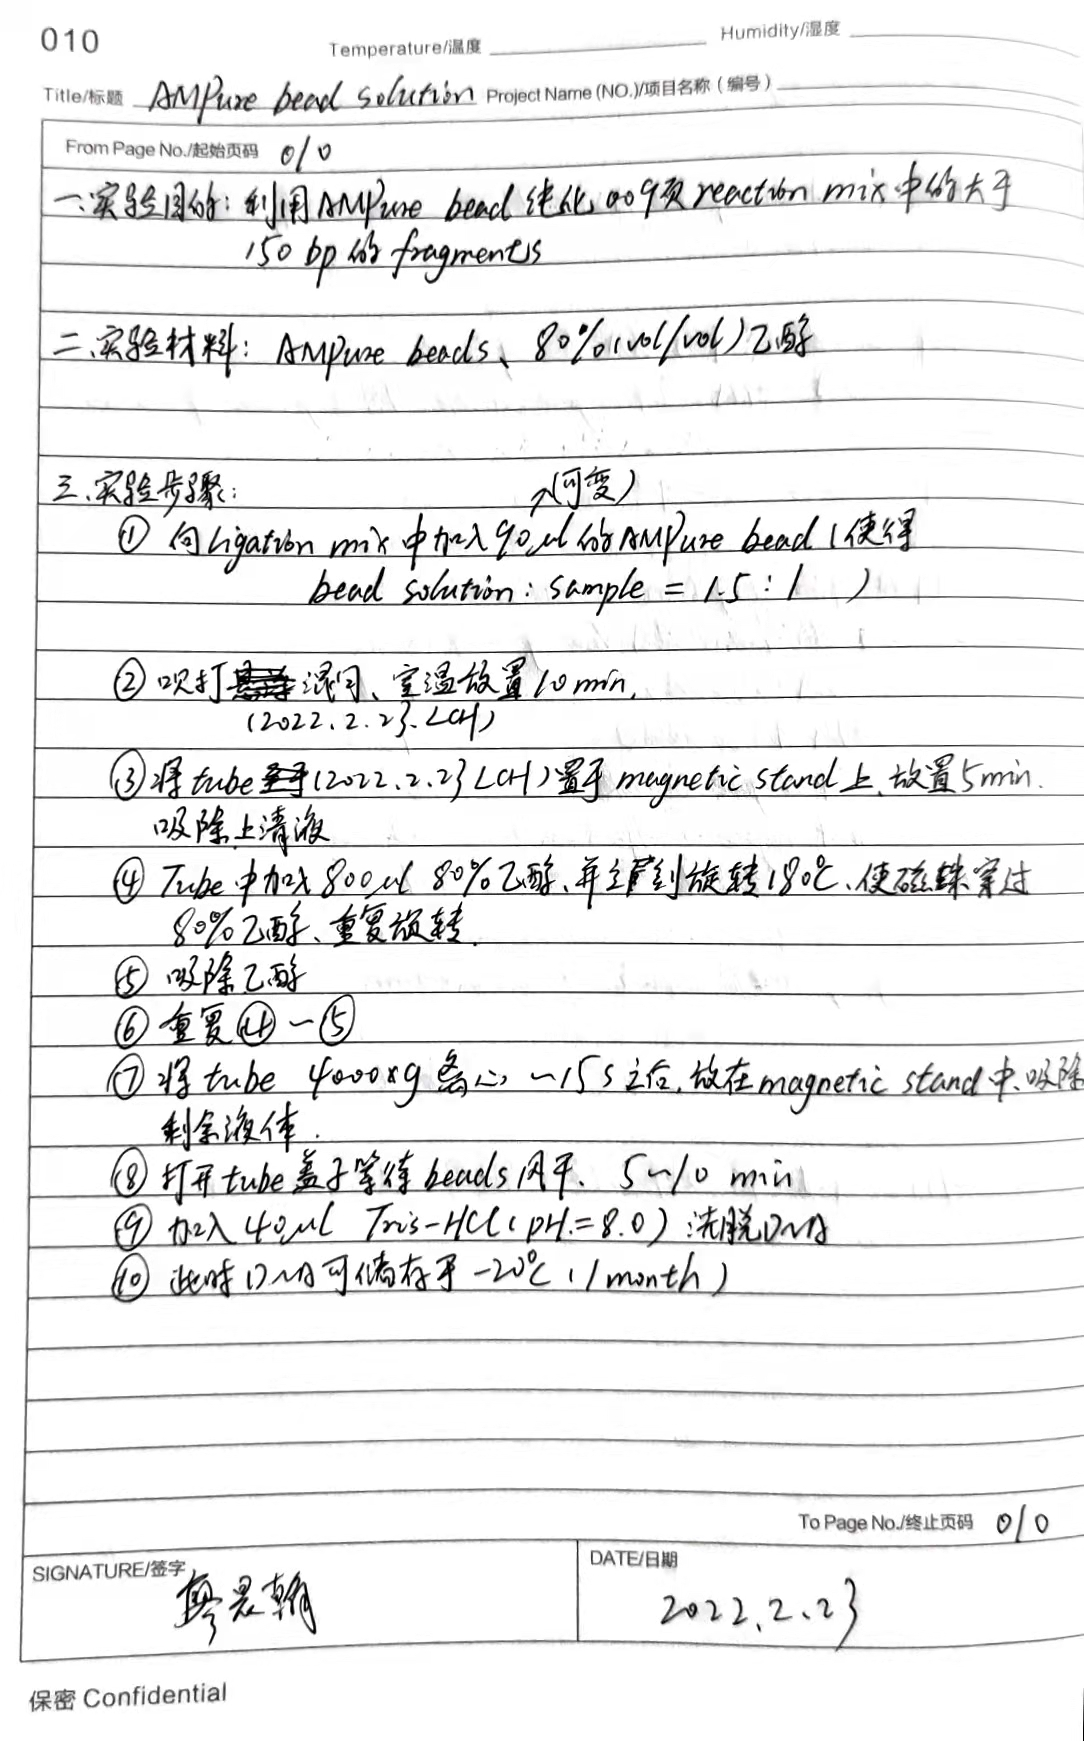 010
Temperature/温度 Humidity/湿度
Title/标题 AMPure bead solution Project Name (NO.)/项目名称（编号）
From Page No./起始页码 010
一、实验目的：利用AMPure bead 纯化 009页 reaction mix 中的大于
150 bp 的 fragments
二、实验材料：AMPure beads、80%(vol/vol)乙醇
三、实验步骤：
↗(可变)
① 向Ligation mix 中加入90μl 的AMPure bead (使得
bead solution : sample = 1.5 : 1 )
② 吹打 混匀、室温放置10 min.
(2022.2.23.LCH)
③ 将tube 至于(2022.2.23 LCH)置于magnetic stand上.放置5min.
吸除上清液
④ Tube中加入800μl 80%乙醇、并立即旋转180℃、使磁珠穿过
80%乙醇、重复旋转.
⑤ 吸除乙醇
⑥ 重复④~⑤
⑦ 将tube 4000xg 离心 ~15s之后.放在magnetic stand中.吸除
剩余液体.
⑧ 打开tube盖子等待beads 风干. 5~10 min
⑨ 加入40μl Tris-HCl(pH=8.0)洗脱DNA
⑩ 此时DNA可储存于-20℃(1 month)
To Page No./终止页码 010
SIGNATURE/签字 DATE/日期
廖晨翰 2022.2.23
保密 Confidential